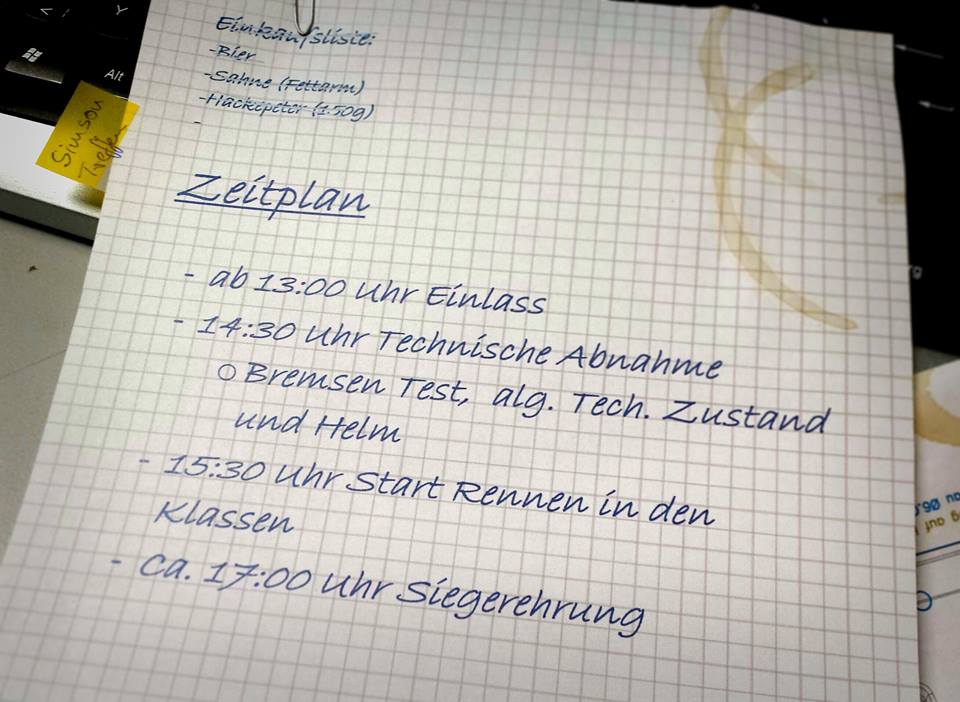 Einkaufsliste:
-Bier
-Sahne (Fettarm)
-Hackepeter (150g)
-
Simson
Treffen
Alt
Zeitplan
- ab 13:00 Uhr Einlass
- 14:30 Uhr Technische Abnahme
o Bremsen Test, alg. Tech. Zustand
und Helm
- 15:30 Uhr Start Rennen in den
Klassen
- ca. 17:00 Uhr Siegerehrung